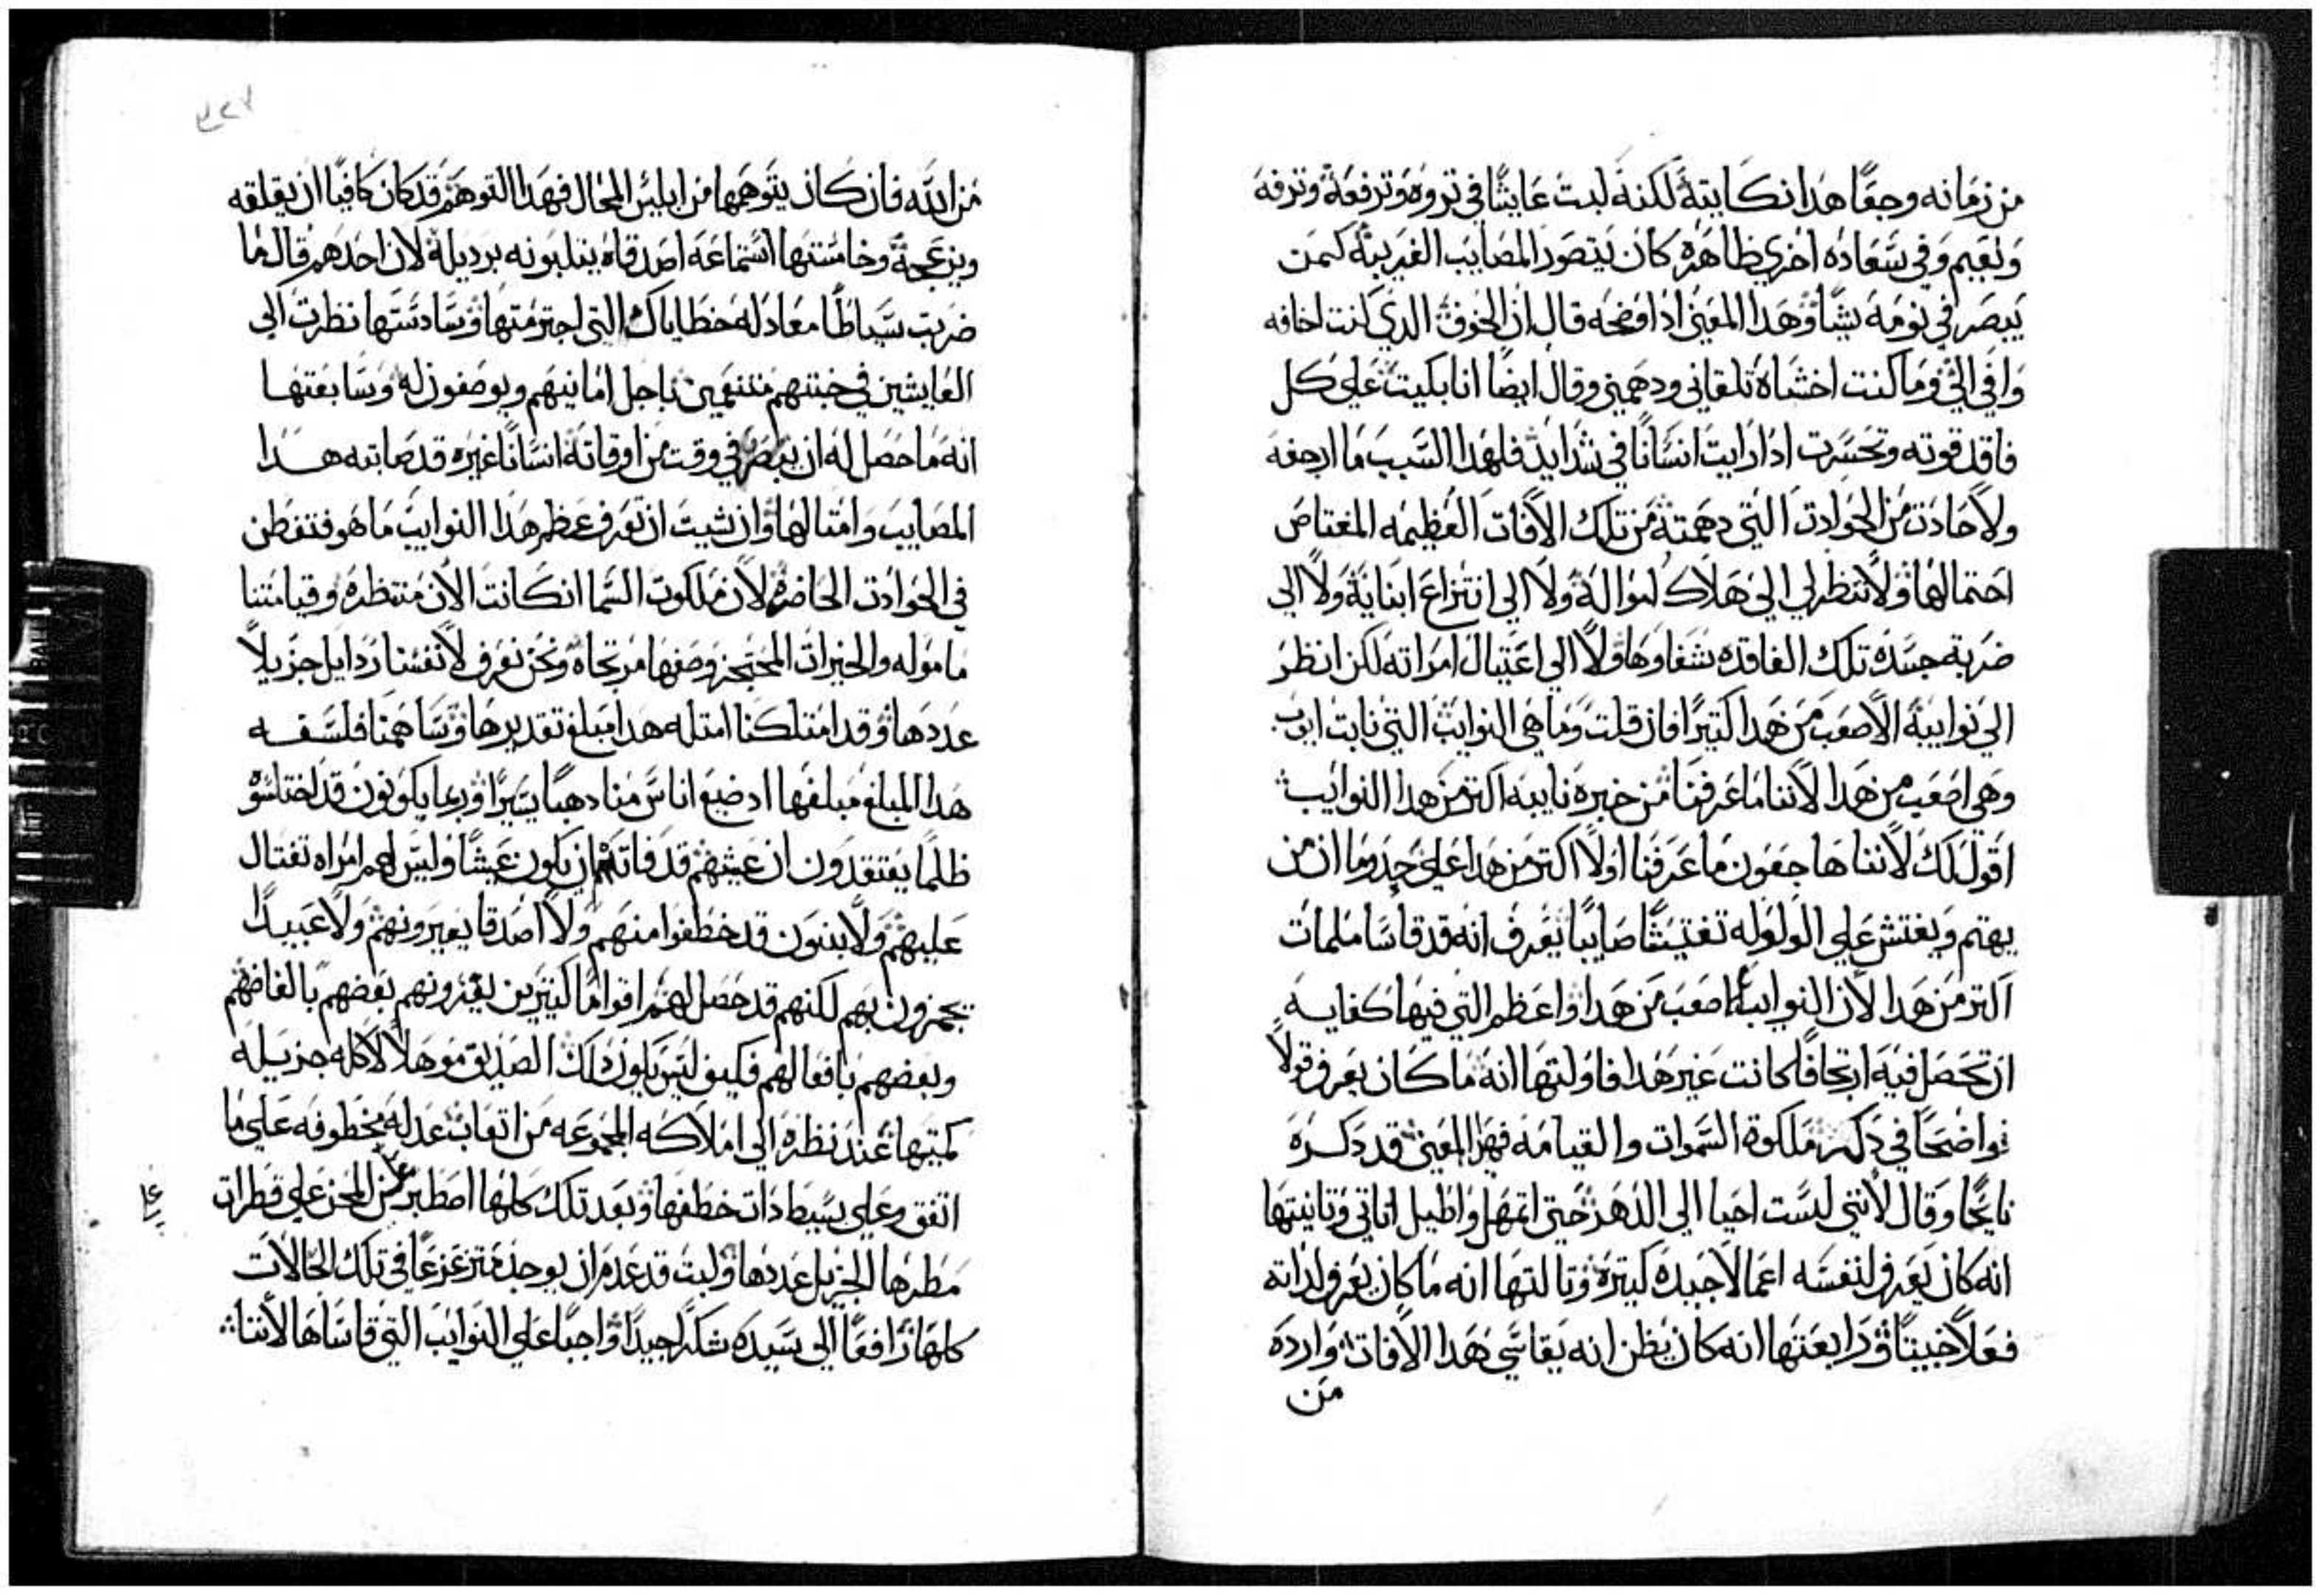 من زمانه وحقًا هدا نكايته لكنه لبت عايشًا في تروه وترفعه وترفه
ونعيم وفي سعاده اخري ظاهره كان يتصور المصايب الغريبه كمن
يبصر في نومه شيًا وهدا المعني ادا اوضحه قال ان الخوف الدي كنت اخافه
وافي الي وما كنت اخشاه تلقاني ودهمني وقال ايضًا انا بكيت علي كل
فاقد قوته وتحسرت ادا رايت انسانًا في شدايد فلهدا السبب ما ارجفه
ولا حادت من الحوادت التي دهمته من تلك الافات العظيمه المغتاص
احتمالها ولا تنظر لي الي هلاك امواله ولا الي انتزاع ابنايه ولا الي
ضربة جسده تلك الفاقده شفاوها ولا الي اغتيال امراته لكن انظر
الي نوايبه الاصعب من هدا كتيرًا فان قلت وما هي النوايب التي نابت ايوب
وهي اصعب من هدا لاننا ما عرفنا من خبره نايبه اكتر من هدا النوايب
اقول لك لاننا هاجعون ما عرفنا اولا اكتر من هدا علي حدوما ان من
يهتم ويفتش علي الولوله تفتيشًا صايبًا يعرف انه قد قاسا ملمات
اكتر من هدا لان النوايب اصعب من هدا واعظم التي فيها كفايه
ان تحصل فيه ارتجافًا كانت غير هدا فاولتها انه ما كان يعرف قولًا
واضحًا في دكر ملكوة السموات والقيامه فهدا المعني قد دكره
نايحًا وقال لانني لست احيا الي الدهر حتي اتمهل واطيل اناتي وتانيتها
انه كان يعرف لنفسه اعمالًا جيده كتيره وتالتها انه ما كان يعرف لداته
فعلًا خبيتًا ورابعتها انه كان يظن انه يقاسي هدا الافات وارده
من
من الله فان كان يتوهمها من ابليس المحال فهدا التوهم قد كان كافيًا ان يقلقه
ويزعجه وخامستها استماعه اصدقاه يتلبونه برديله لان احدهم قال ما
ضربت سياطًا معادله خطاياك التي اجترمتها وسادستها نظرت الي
العايشين في خبتهم متنعمين باجل امانيهم ويوصفون له وسابعتها
انه ما حصل له ان يبصر في وقت من اوقاته انسانًا غيره قد صابته هدا
المصايب وامتالها وان شيت ان تعرف عظم هدا النوايب ما هو فتفطن
في الحوادت الحاضره لان ملكوت السما ان كانت الان منتظره وقيامتنا
ماموله والخيرات المحتجز وصفها مرتجاه ونحن نعرف لانفسنا ردايل جزيلًا
عددها وقد امتلكنا امتله هدا مبلغ تقديرها وتساهمنا فلسفه
هدا المبلغ مبلغها اد ضيع اناس منا دهبًا يسيرًا وربما يكونون قد اختاسوه
ظلمًا يعتقدون ان عيشهم قد فاتهم ان يكون عيشًا وليس لهم امراه تغتال
عليهم ولا بنون قد خطفوا منهم ولا اصدقا يعيرونهم ولا عبيدًا
يجمزون بهم لكنهم قد حصل لهم اقوامًا كتيرين يعزونهم بعضهم بالفاضهم
وبعضهم بافعالهم فكيف ليس يكون دلك الصديق موهلًا لاكله جزيله
كميتها عند نظره الي املاكه المجموعه من اتعاب عدله مخطوفه علي ما
اتفق وعلي بسيط دات خطفها وبعد تلك كلها اصطبر علي من المحن علي قطرات
مطرها الجزيل عددها ولبت قد عدم ان يوجد متزعزعًا في تلك الحالات
كلها رافعًا الي سيده شكرًا جيدًا واجبًا علي النوايب التي قاساها لاننا